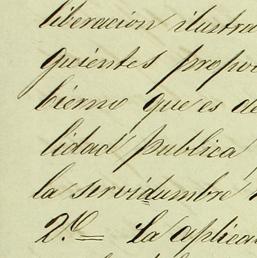 liberacion ilustra
guientes propo
bierno que es de
lidad publica
la servidumbre
2.º La aplica